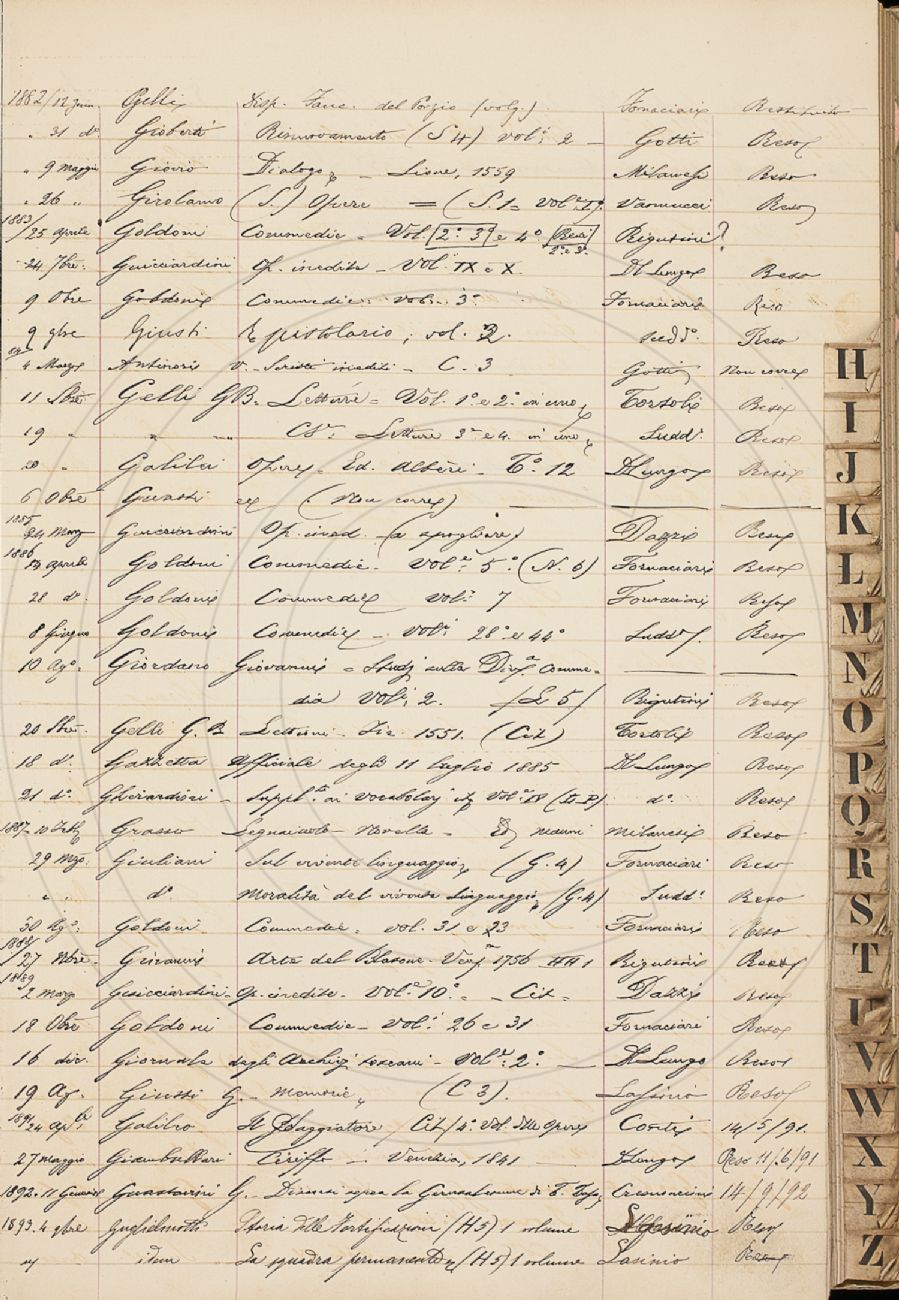 1882/12 Giu. Gelli Disp. Fanc. del Porzio (volg.) Fornaciari Restituito
" 31 do Gioberti Rinnovamento (S 4) vol.i 2 Gotti Reso
" 9 Maggio Giovio Dialogo Lione, 1559 Milanesi Reso
" 26 " Girolamo (S.) Opere = (S. 1 = vol.e II) Vannucci Reso
1883/25 aprile Goldoni Commedie - Vol. 2.o 3.o e 4.o Rigutini ?
24 7bre. Guicciardini Op. inedite - vol. IX e X. Del Lungo Reso
9 Obre Goldoni Commedie - vol. 3.o Fornaciari Reso
9 9bre Giusti Epistolario, vol. 2. sudd.o Reso
4 Marzo Antinori V. - Scritti inediti - C. 3 Gotti Non corre
11 Gelli GB. Letture - Vol. 1.o e 2.o in uno Tortoli Reso
19 " " " Letture 3.a e 4. in uno Sudd.o Reso
20 " Galilei Opere, Ed. Albèri - T.o 12 D Lungo Reso
6 Obre (Non corre)
1885 24 Marzo Guicciardini Op. ined. (a spogliare) Dazzi Reso
1886 aprile Goldoni Commedie - vol.e 5.o (N. 6) Fornaciari Reso
28 d.o Goldoni Commedie vol.e 7 Fornaciari Reso
8 Giugno Goldoni Commedie - vol.i 28.o e 44.o Sudd.o Reso
10 Ag.o Giordano Giovanni = Studj sulla Div.a Comme-
dia Vol.i 2. /L 5/ Rigutini Reso
20 Gelli G. B Letture - Fir. 1551. (Cit) Tortoli Reso
18 d.o Gazzetta Ufficiale degli 11 luglio 1885 Del Lungo Reso
21 d.o Gherardini - Suppl.to ai vocabolarj it. vol.e IV d.o Reso
1887 - 10 Grasso Legnaiuolo - Novella - Milanesi Reso
29 Mzo. Giuliani Sul vivente linguaggio, (G. 4) Fornaciari Reso
" " d.o Moralità del vivente linguaggio, (G. 4) Sudd.o Reso
30 Ag.o Goldoni Commedie. vol. 31 e 23 Fornaciari Reso
1888/27 Arte del Blasone - Ven.a 1756 Rigutini Reso
1889 2 Marzo Guicciardini - Op. inedite - vol.e 10.o - Cit - Dazzi Reso
18 Obre Goldoni Commedie - vol.i 26 e 31 Fornaciari Reso
16 dic. Giornale degli Archivj toscani - vol.e 2.o D Lungo Reso
19 Ag. Giusti G. - Memorie, (C 3). Lasinio Reso
1891/24 Galileo Il Saggiatore / Cit / 4.o vol. delle Opere Conti 14/5/91.
27 maggio Giambullari Ciriffo - Venezia, 1841 D Lungo Reso 11/6/91
1892. 11 Guastavini G. Discorsi sopra la Gerusalemme di T. Tasso 14/9/92
1893. 4 9bre Guglielmotti Storia delle Fortificazioni /(H 5) 1 volume Lasinio Reso
idem La squadra permanente (H 5) 1 volume Lasinio Reso
H
I
J
K
L
M
N
O
P
Q
R
S
T
U
V
W
X
Y
Z